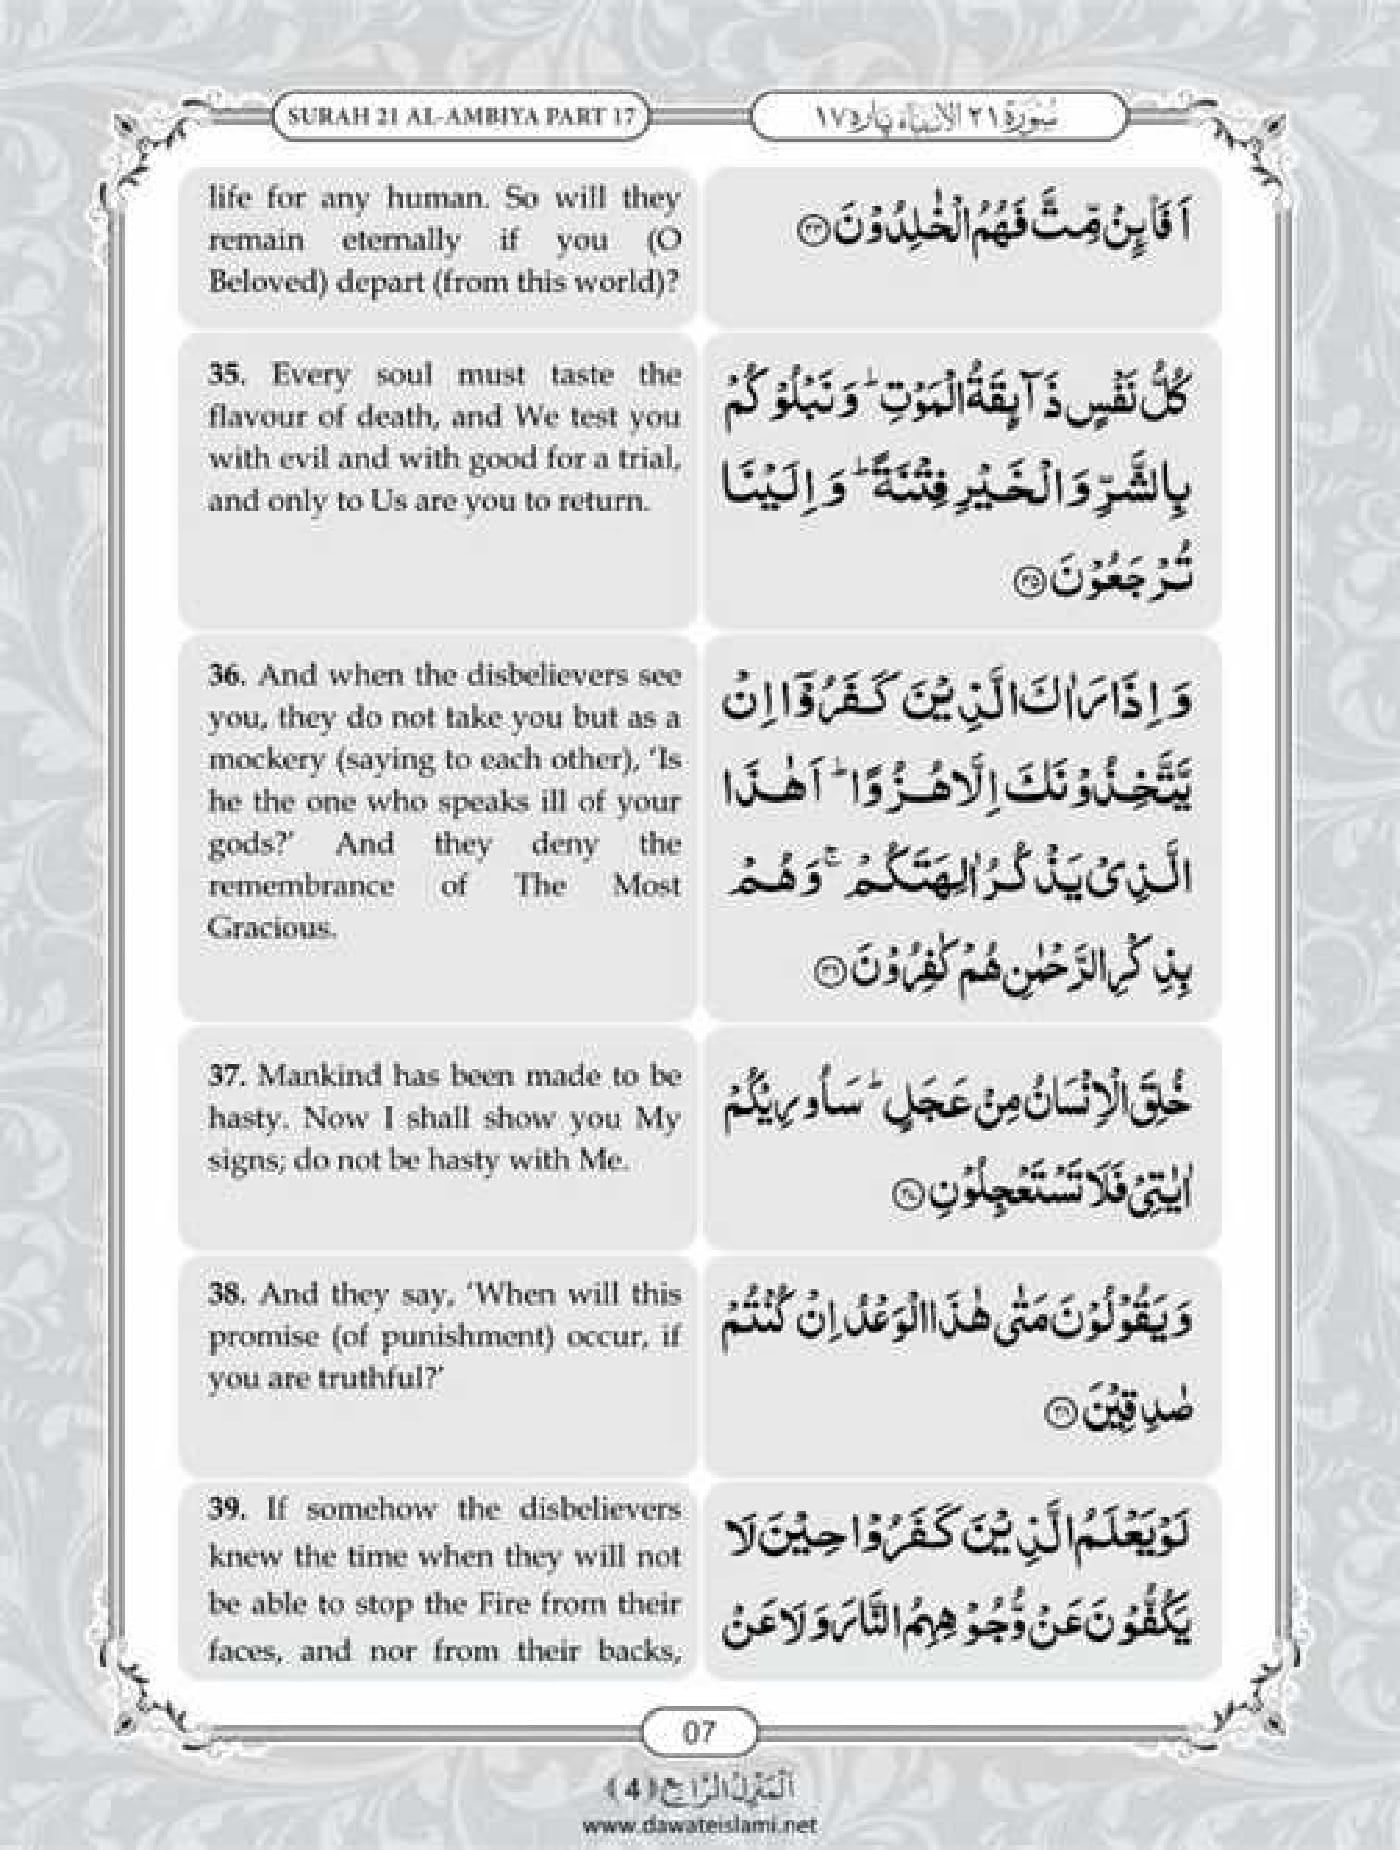 SURAH 21 AL-AMBIYA PART 17
سُوْرَة ٢١ الانبياء پارہ ١٧
life for any human. So will they
remain eternally if you (O
Beloved) depart (from this world)?
اَفَا۠ىِٕنْ مِّتَّ فَهُمُ الْخٰلِدُوْنَ ﴿۳۴﴾
35. Every soul must taste the
flavour of death, and We test you
with evil and with good for a trial,
and only to Us are you to return.
كُلُّ نَفْسٍ ذَآىِٕقَةُ الْمَوْتِ ؕ وَ نَبْلُوْكُمْ
بِالشَّرِّ وَ الْخَيْرِ فِتْنَةً ؕ وَ اِلَيْنَا
تُرْجَعُوْنَ ﴿۳۵﴾
36. And when the disbelievers see
you, they do not take you but as a
mockery (saying to each other), ‘Is
he the one who speaks ill of your
gods?’ And they deny the
remembrance of The Most
Gracious.
وَ اِذَا رَاٰكَ الَّذِيْنَ كَفَرُوْۤا اِنْ
يَّتَّخِذُوْنَكَ اِلَّا هُزُوًا ؕ اَهٰذَا
الَّذِیْ يَذْكُرُ اٰلِهَتَكُمْ ۚ وَ هُمْ
بِذِكْرِ الرَّحْمٰنِ هُمْ كٰفِرُوْنَ ﴿۳۶﴾
37. Mankind has been made to be
hasty. Now I shall show you My
signs; do not be hasty with Me.
خُلِقَ الْاِنْسَانُ مِنْ عَجَلٍ ؕ سَاُورِيْكُمْ
اٰيٰتِیْ فَلَا تَسْتَعْجِلُوْنِ ﴿۳۷﴾
38. And they say, ‘When will this
promise (of punishment) occur, if
you are truthful?’
وَ يَقُوْلُوْنَ مَتٰى هٰذَا الْوَعْدُ اِنْ كُنْتُمْ
صٰدِقِيْنَ ﴿۳۸﴾
39. If somehow the disbelievers
knew the time when they will not
be able to stop the Fire from their
faces, and nor from their backs,
لَوْ يَعْلَمُ الَّذِيْنَ كَفَرُوْا حِيْنَ لَا
يَكُفُّوْنَ عَنْ وُّجُوْهِهِمُ النَّارَ وَ لَا عَنْ
07
اَلْمَنْزِلُ الرَّابِع (4)
www.dawateislami.net